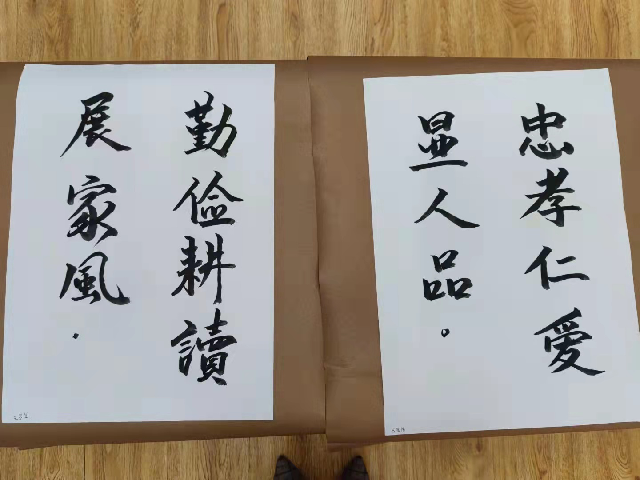 忠孝仁爱
显人品。
勤俭耕讀
展家風.